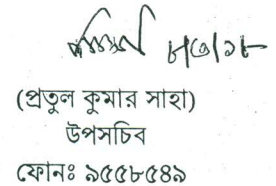 ৮/৩/১৮
(প্রতুল কুমার সাহা)
উপসচিব
ফোনঃ ৯৫৫৮৫৪৯